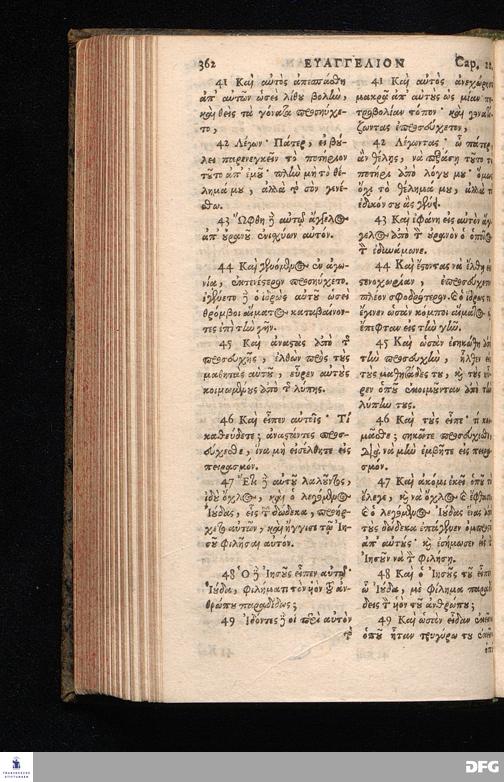 362 ΕΥΑΓΓΕΛΙΟΝ Cap. 22.
41 Καὶ αὐτὸς ἀπεσπάσθη
ἀπ' αὐτῶν ὡσεὶ λίθου βολὴν,
καὶ θεὶς τὰ γόνατα προσηύχε-
το,
42 Λέγων· Πάτερ, εἰ βού-
λει παρενεγκεῖν τὸ ποτήριον
τοῦτο ἀπ' ἐμοῦ· πλὴν μὴ τὸ θέ-
λημά μου, ἀλλὰ τὸ σὸν γενέ-
σθω.
43 Ὤφθη δὲ αὐτῷ ἄγγελος
ἀπ' οὐρανοῦ ἐνισχύων αὐτόν.
44 Καὶ γενόμενος ἐν ἀγω-
νίᾳ, ἐκτενέστερον προσηύχετο.
ἐγένετο δὲ ὁ ἱδρὼς αὐτοῦ ὡσεὶ
θρόμβοι αἵματος καταβαίνον-
τες ἐπὶ τὴν γῆν.
45 Καὶ ἀναστὰς ἀπὸ τῆς
προσευχῆς, ἐλθὼν πρὸς τοὺς
μαθητὰς αὐτοῦ, εὗρεν αὐτοὺς
κοιμωμένους ἀπὸ τῆς λύπης.
46 Καὶ εἶπεν αὐτοῖς· Τί
καθεύδετε; ἀναστάντες προσ-
εύχεσθε, ἵνα μὴ εἰσέλθητε εἰς
πειρασμόν.
47 Ἔτι δὲ αὐτοῦ λαλοῦντος,
ἰδοὺ ὄχλος, καὶ ὁ λεγόμενος
Ἰούδας, εἷς τῶν δώδεκα, προήρ-
χετο αὐτῶν, καὶ ἤγγισε τῷ Ἰη-
σοῦ φιλῆσαι αὐτόν.
48 Ὁ δὲ Ἰησοῦς εἶπεν αὐτῷ·
Ἰούδα, φιλήματι τὸν υἱὸν τοῦ ἀν-
θρώπου παραδίδως;
49 Ἰδόντες δὲ οἱ περὶ αὐτὸν
τὸ
41 Καὶ αὐτὸς
μακρὰ ἀπ' αὐτοὺς ὡς μίαν
τροβολίαν τόπον· καὶ
ζωντας ἐπροσεύχετον,
42 Λέγωντας· ὦ πάτερ,
ἂν θέλῃς, νὰ
ποτήρι ἀπὸ λόγου μου·
ὄχι τὸ θέλημα μου, ἀλλὰ
ἐδικόν σου ἂς γένῃ.
43 Καὶ ἐφάνη εἰς αὐτὸν
γελος ἀπὸ τὸν οὐρανὸν ὁ
τὸν ἐδυνάμωνε.
44 Καὶ ἔσοντας νὰ ἔλθῃ
στενοχωρίαν, ἐπροσεύχετον
πλέον σφοδρότερον. καὶ ὁ ἵδρως
ἔγινεν ὡσὰν κόμποι αἵματος
ἔπιφταν εἰς τὴν γῆν.
45 Καὶ ὡσὰν ἐσηκώθη
τὴν προσευχὴν, ἦλθεν
τοὺς μαθητάδες του, καὶ τοὺς
ρεν ὁποῦ ἐκοιμοῦνταν ἀπὸ τὴν
λύπην τους.
46 Καὶ τοὺς εἶπε· τί
μᾶσθε; σηκωτε
διὰ νὰ μὴν ἐμβῆτε εἰς
σμόν.
47 Καὶ ἀκόμι ἐκεῖ ὁποῦ
ἔλεγε, καὶ νὰ ὄχλος
καὶ ὁ λεγόμενος Ἰούδας
τοὺς δώδεκα
ἀπ' αὐτούς· καὶ ἐσίμωσεν εἰς
Ἰησοῦν νὰ τὸν φιλήσῃ.
48 Καὶ ὁ Ἰησοῦς τοῦ εἶπε
ὦ Ἰούδα, μὲ φίλημα
δεις τὸν υἱὸν τοῦ ἀνθρώπου;
49 Καὶ ὡσὰν εἶδαν
ὁποῦ ἦταν τριγύρω του
DFG